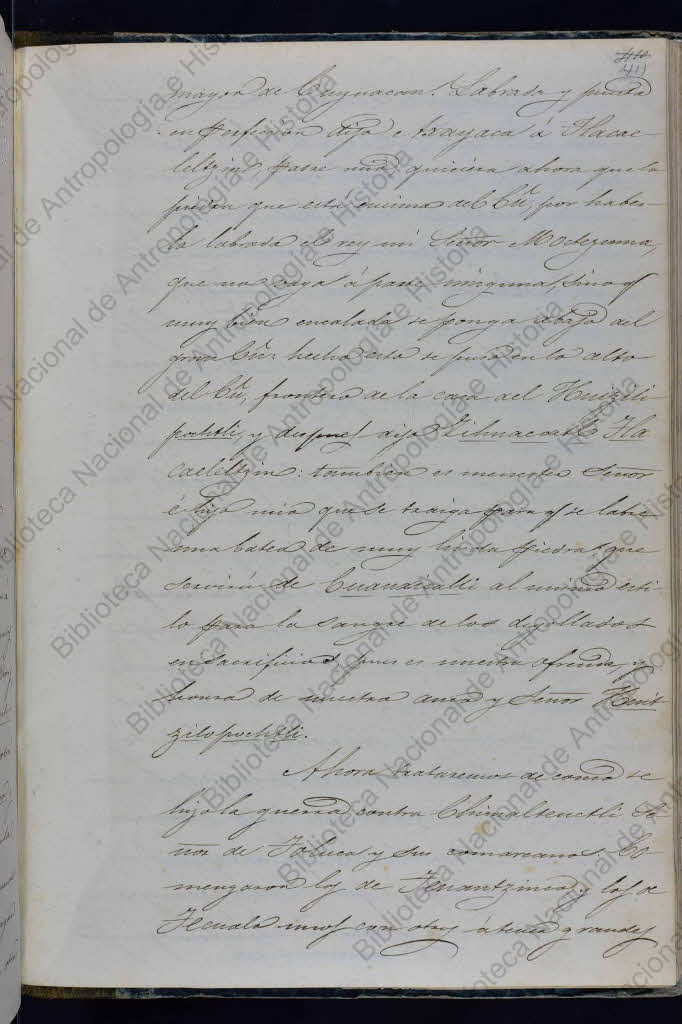 411
mayor de Cuyuacan. Labrada y puesta
en perfeccion dijo e Axayaca á Tlacae
leltzin, padre mio, quiciera ahora que la
piedra que está encima del Cú, por haber-
la labrado el rey mi Señor Moctezuma,
que no vaya á parte ninguna, sino q
muy bien encalada se ponga debajo del
gran Cú: hecho esto se puso en lo alto
del Cú, frontero de la casa del Huitzili
pochtli, y despues dijo Zihuacoatl Tla
caeleltzin: tambien es menester Señor
é hijo mio que se traiga para q se labre
una batea de muy linda piedra, que
servirá de Cuauxicalli al mismo esti-
lo para la sangre de los degollados
en sacrificio, pues es nuestra ofrenda, y
honra de nuestro amo y Señor Huit
zilopochtli.
Ahora trataremos de como se
hizo la guerra contra Chimalteuctli Se
ñor de Toluca y sus comarcanos. Co
menzaron los de Tenantzinco y los de
Tecualo unos con otros á tener grandes
Biblioteca Nacional de Antropología e Historia